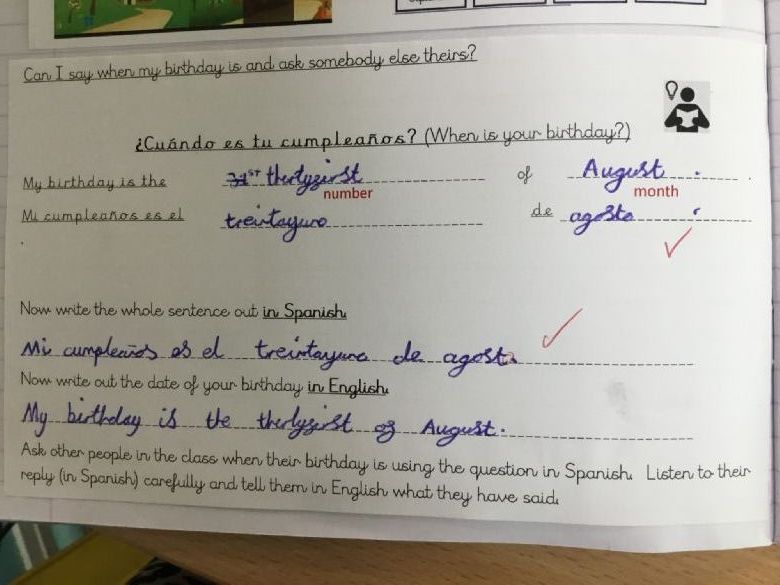 Can I say when my birthday is and ask somebody else theirs?
¿Cuándo es tu cumpleaños? (When is your birthday?)
My birthday is the 31st thertyfirst of August.
number month
Mi cumpleaños es el treintayuno de agosto.
Now write the whole sentence out in Spanish.
Mi cumpleaños es el treintayuno de agosto.
Now write out the date of your birthday in English.
My birthday is the thertyfirst of August.
Ask other people in the class when their birthday is using the question in Spanish. Listen to their
reply (in Spanish) carefully and tell them in English what they have said.